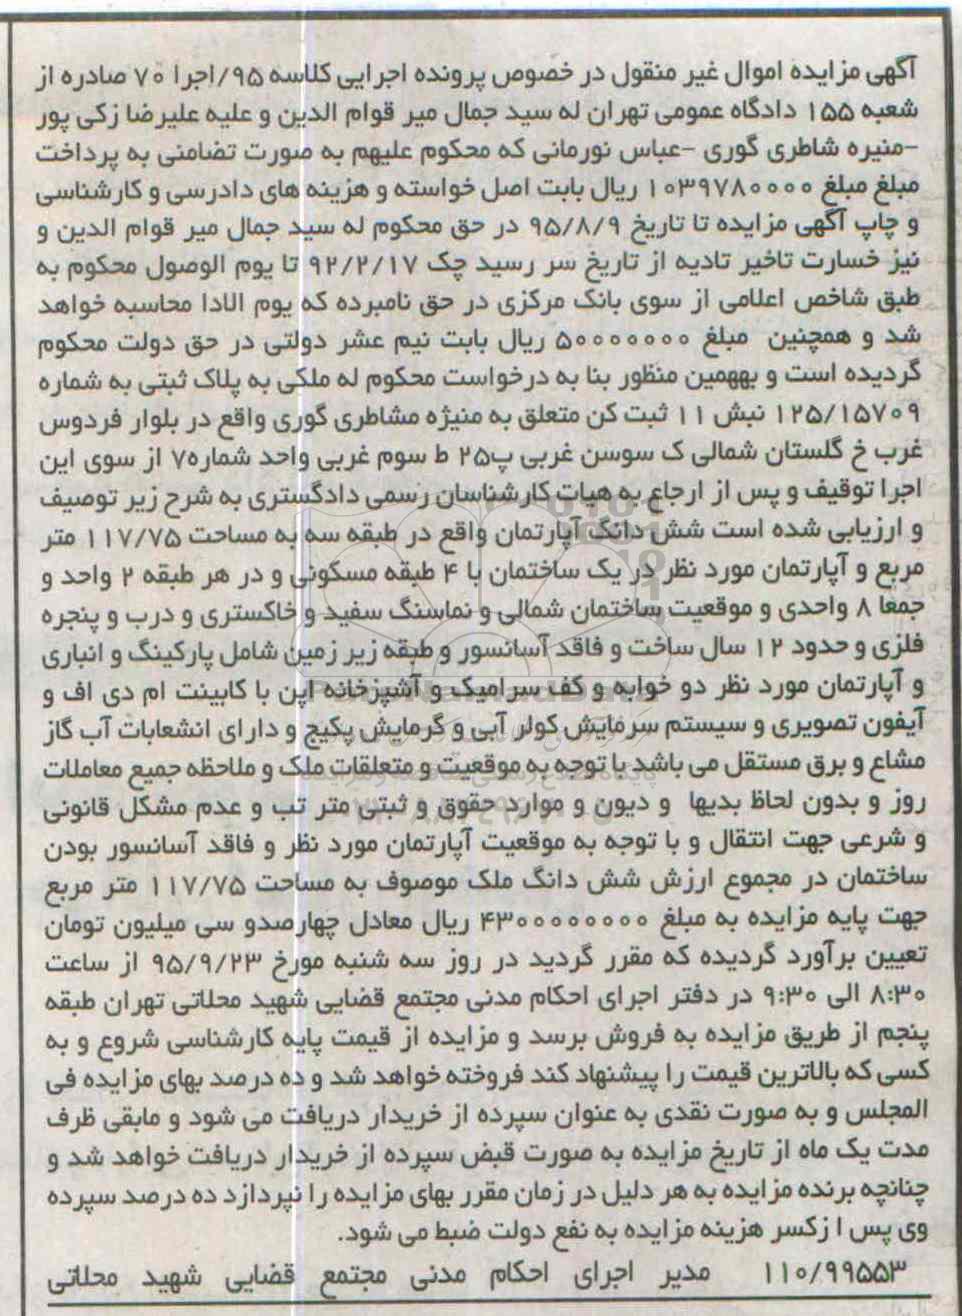 آگهی مزایده اموال غیر منقول در خصوص پرونده اجرایی کلاسه ۹۵/اجرا ۷۰ صادره از
شعبه ۱۵۵ دادگاه عمومی تهران له سید جمال میر قوام الدین و علیه علیرضا زکی پور
-منیره شاطری گوری -عباس نورمانی که محکوم علیهم به صورت تضامنی به پرداخت
مبلغ مبلغ ۱۰۳۹۷۸۰۰۰۰ ریال بابت اصل خواسته و هزینه های دادرسی و کارشناسی
و چاپ آگهی مزایده تا تاریخ ۹۵/۸/۹ در حق محکوم له سید جمال میر قوام الدین و
نیز خسارت تاخیر تادیه از تاریخ سر رسید چک ۹۲/۲/۱۷ تا یوم الوصول محکوم به
طبق شاخص اعلامی از سوی بانک مرکزی در حق نامبرده که یوم الادا محاسبه خواهد
شد و همچنین مبلغ ۵۰۰۰۰۰۰۰ ریال بابت نیم عشر دولتی در حق دولت محکوم
گردیده است و بههمین منظور بنا به درخواست محکوم له ملکی به پلاک ثبتی به شماره
۱۲۵/۱۵۷۰۹ نبش ۱۱ ثبت کن متعلق به منیژه مشاطری گوری واقع در بلوار فردوس
غرب خ گلستان شمالی ک سوسن غربی پ۲۵ ط سوم غربی واحد شماره۷ از سوی این
اجرا توقیف و پس از ارجاع به هیات کارشناسان رسمی دادگستری به شرح زیر توصیف
و ارزیابی شده است شش دانگ آپارتمان واقع در طبقه سه به مساحت ۱۱۷/۷۵ متر
مربع و آپارتمان مورد نظر در یک ساختمان با ۴ طبقه مسکونی و در هر طبقه ۲ واحد و
جمعا ۸ واحدی و موقعیت ساختمان شمالی و نماسنگ سفید و خاکستری و درب و پنجره
فلزی و حدود ۱۲ سال ساخت و فاقد آسانسور و طبقه زیر زمین شامل پارکینگ و انباری
و آپارتمان مورد نظر دو خوابه و کف سرامیک و آشپزخانه اپن با کابینت ام دی اف و
آیفون تصویری و سیستم سرمایش کولر آبی و گرمایش پکیج و دارای انشعابات آب گاز
مشاع و برق مستقل می باشد با توجه به موقعیت و متعلقات ملک و ملاحظه جمیع معاملات
روز و بدون لحاظ بدیها و دیون و موارد حقوق و ثبتی متر تب و عدم مشکل قانونی
و شرعی جهت انتقال و با توجه به موقعیت آپارتمان مورد نظر و فاقد آسانسور بودن
ساختمان در مجموع ارزش شش دانگ ملک موصوف به مساحت ۱۱۷/۷۵ متر مربع
جهت پایه مزایده به مبلغ ۴۳۰۰۰۰۰۰۰۰ ریال معادل چهارصدو سی میلیون تومان
تعیین برآورد گردیده که مقرر گردید در روز سه شنبه مورخ ۹۵/۹/۲۳ از ساعت
۸:۳۰ الی ۹:۳۰ در دفتر اجرای احکام مدنی مجتمع قضایی شهید محلاتی تهران طبقه
پنجم از طریق مزایده به فروش برسد و مزایده از قیمت پایه کارشناسی شروع و به
کسی که بالاترین قیمت را پیشنهاد کند فروخته خواهد شد و ده درصد بهای مزایده فی
المجلس و به صورت نقدی به عنوان سپرده از خریدار دریافت می شود و مابقی ظرف
مدت یک ماه از تاریخ مزایده به صورت قبض سپرده از خریدار دریافت خواهد شد و
چنانچه برنده مزایده به هر دلیل در زمان مقرر بهای مزایده را نپردازد ده درصد سپرده
وی پس ا زکسر هزینه مزایده به نفع دولت ضبط می شود.
۱۱۰/۹۹۵۵۳ مدیر اجرای احکام مدنی مجتمع قضایی شهید محلاتی